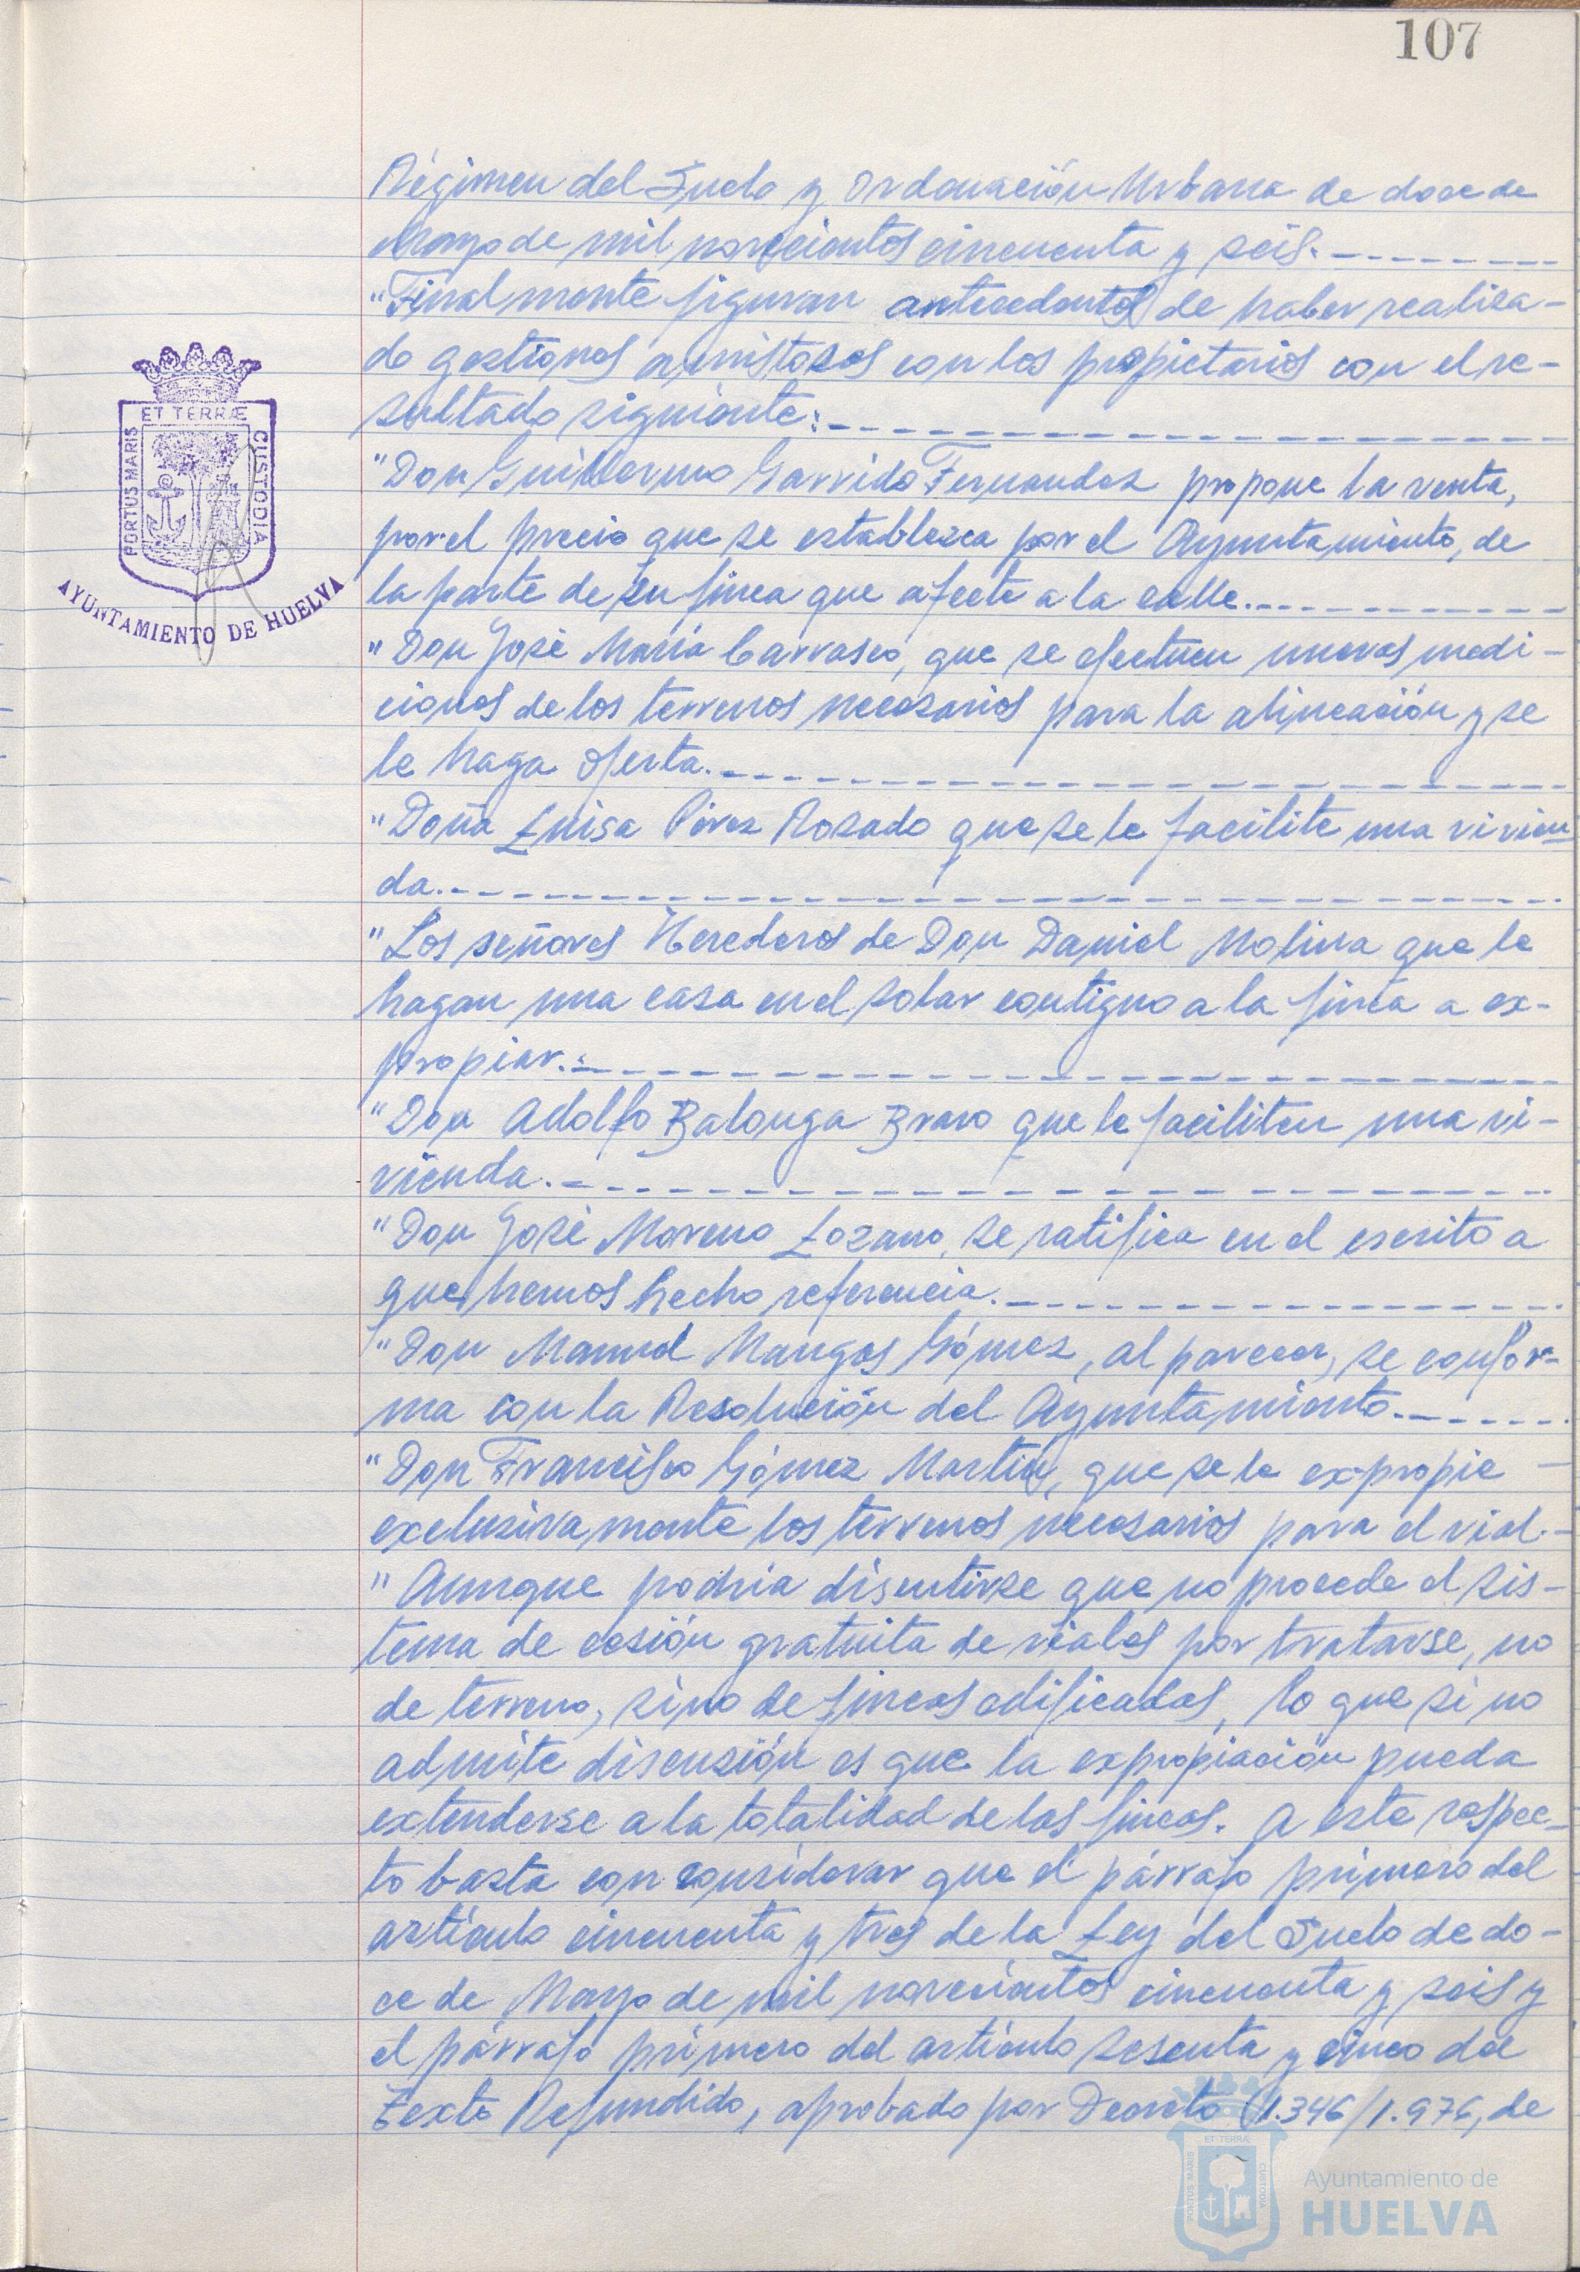 107
Régimen del Suelo y Ordenación Urbana de doce de
Mayo de mil novecientos cincuenta y seis.
"Finalmente figuran antecedentes de haber realiza-
do gestiones amistosas con los propietarios con el re-
sultado siguiente:
"Don Guillermo Garrido Fernandez propone la venta,
por el precio que se establezca por el Ayuntamiento, de
la parte de su finca que afecte a la calle.
"Don José María Carrasco, que se efectuen nuevas medi-
ciones de los terrenos necesarios para la alineación y se
le haga oferta.
"Doña Luisa Pérez Rosado que se le facilite una vivien
da.
"Los señores Herederos de Don Daniel Molina que le
hagan una casa en el solar contiguo a la finca a ex-
propiar.
"Don Adolfo Balonga Bravo que le faciliten una vi-
vienda.
"Don José Moreno Lozano, se ratifica en el escrito a
que hemos hecho referencia.
"Don Manuel Mangas Gómez, al parecer, se confor-
ma con la Resolución del Ayuntamiento.
"Don Francisco Gómez Martín, que se le expropie
exclusivamente los terrenos necesarios para el vial.
"Aunque podria discutirse que no procede el sis-
tema de cesión gratuita de viales por tratarse, no
de terreno, sino de fincas edificadas, lo que si no
admite discusión es que la expropiación pueda
extenderse a la totalidad de las fincas. A este respec-
to basta con considerar que el párrafo primero del
artículo cincuenta y tres de la Ley del Suelo de do-
ce de Mayo de mil novecientos cincuenta y seis y
el párrafo primero del artículo sesenta y cinco del
Texto Refundido, aprobado por Decreto 1.346/1.976, de
ET TERRÆ
PORTUS MARIS
CUSTODIA
AYUNTAMIENTO DE HUELVA
ET TERRÆ
PORTUS MARIS
CUSTODIA
Ayuntamiento de
HUELVA